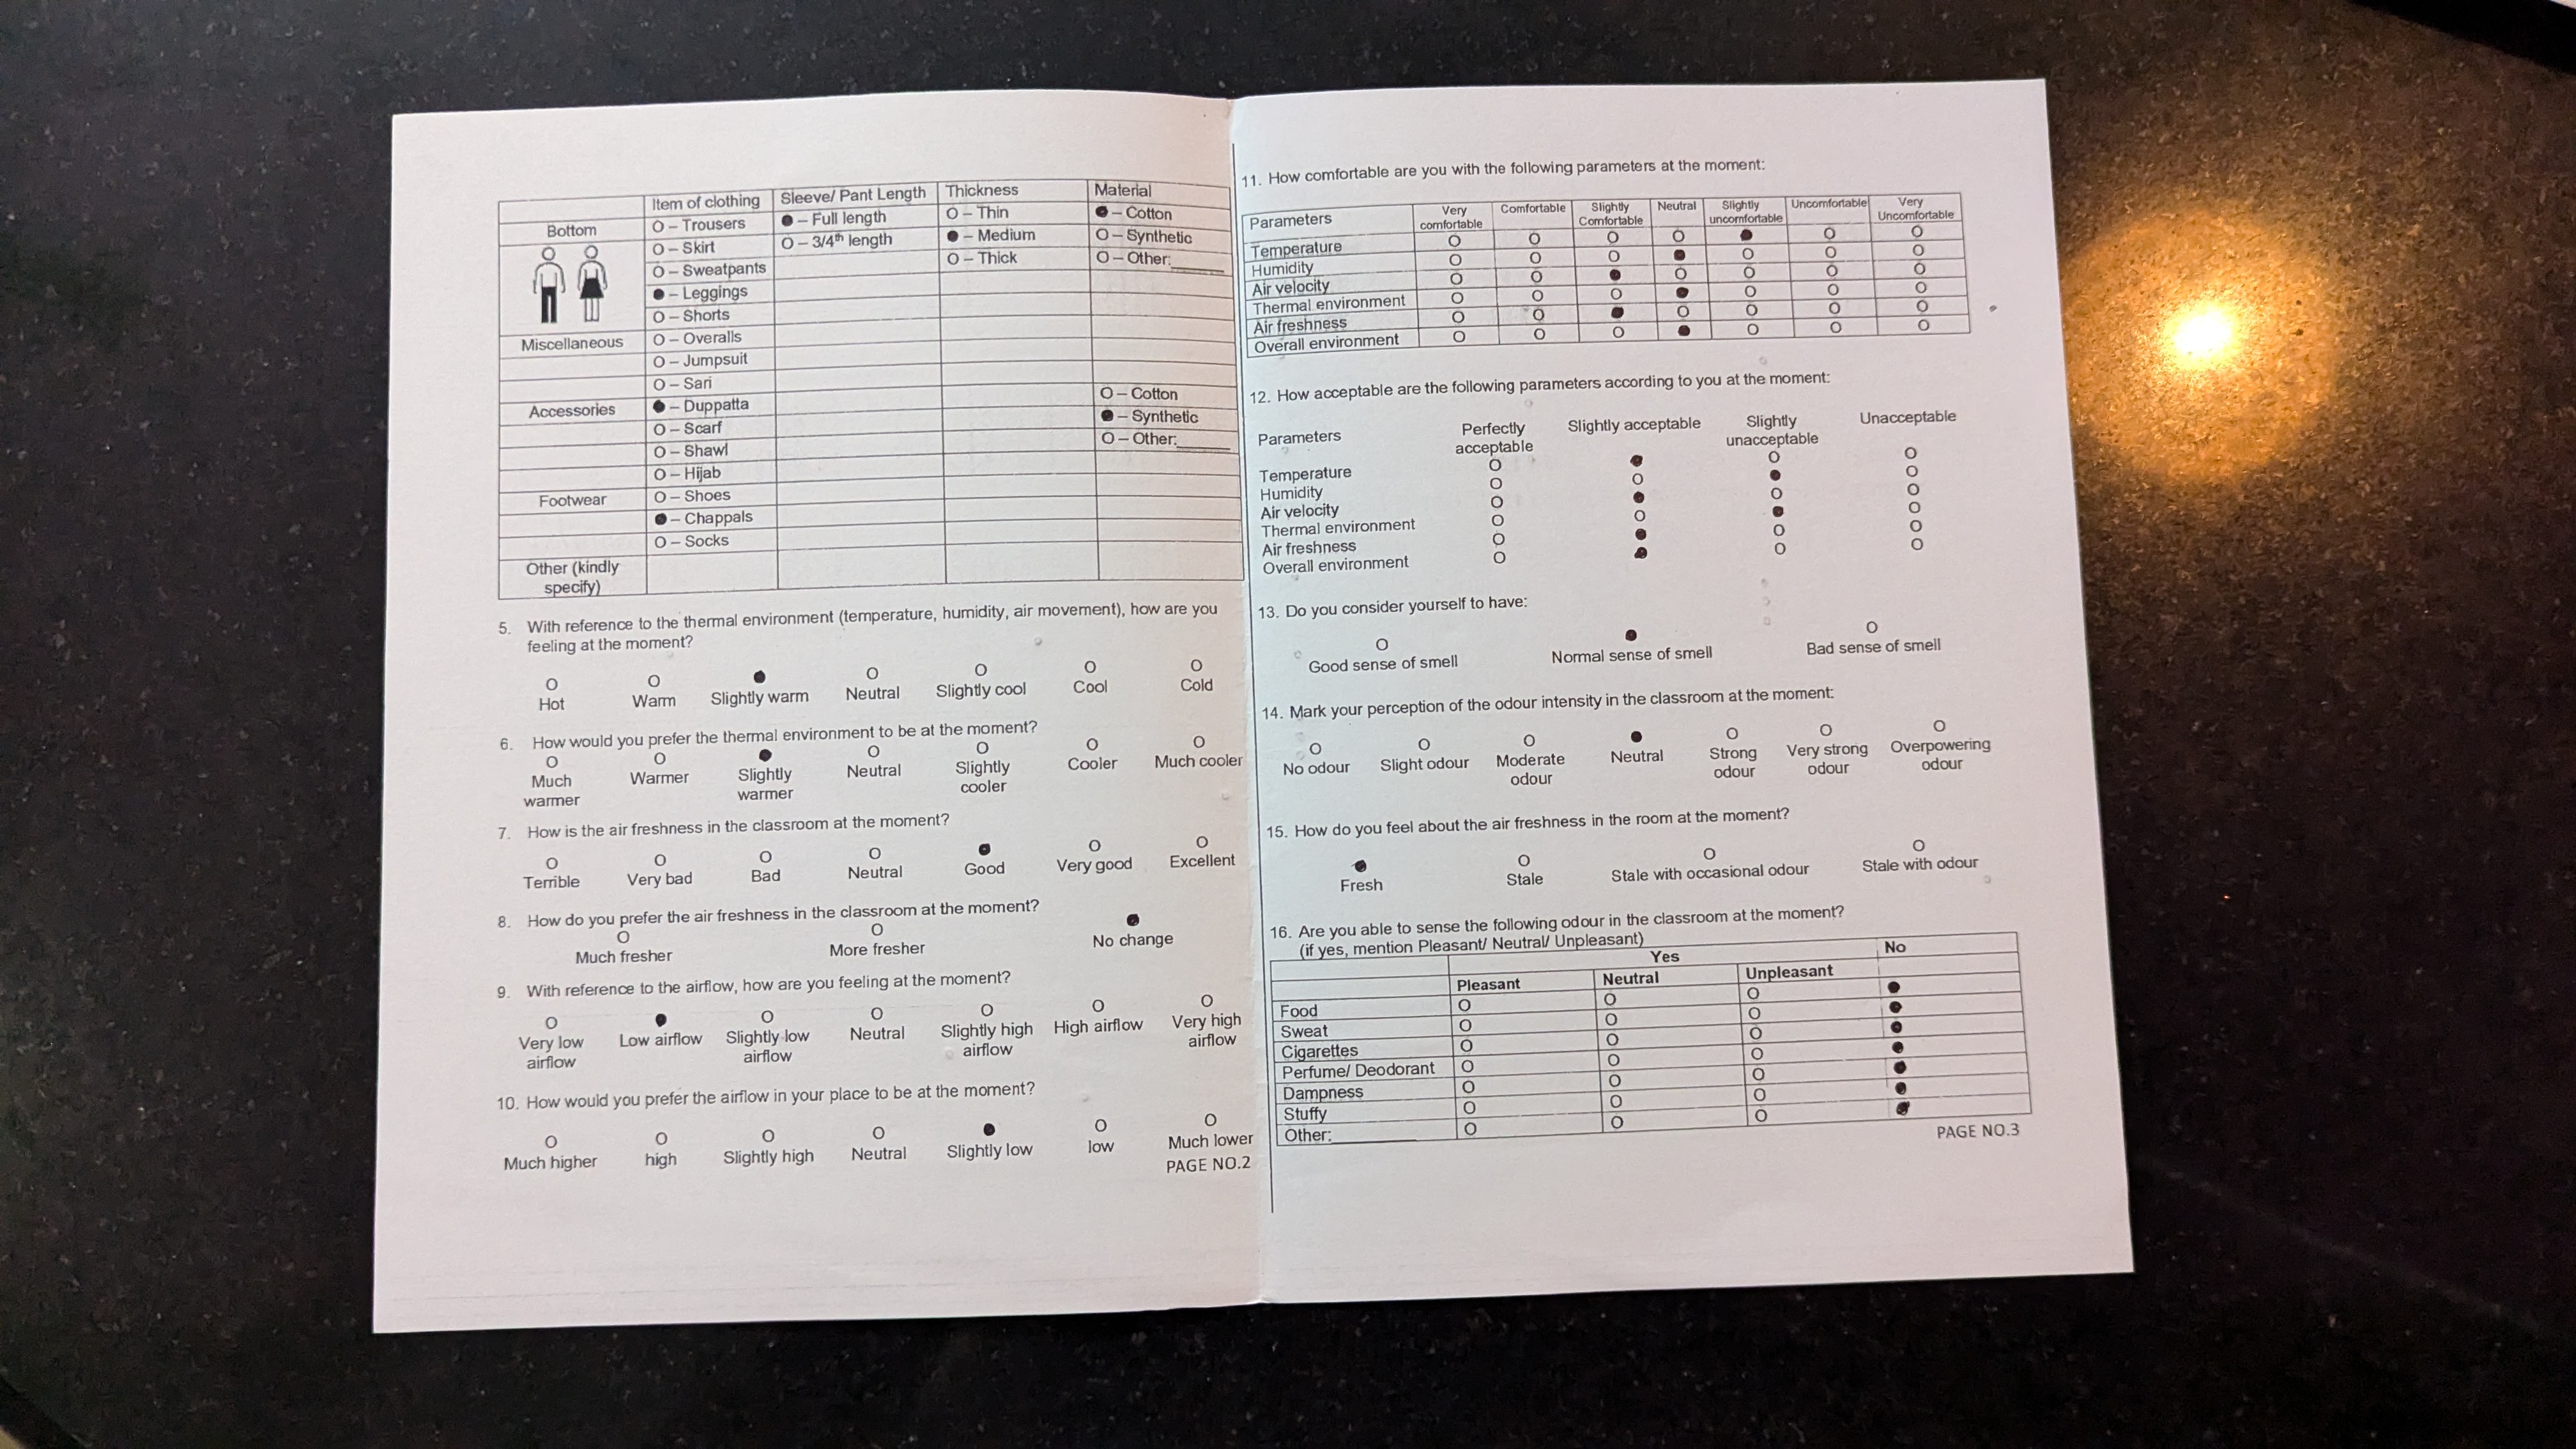 Item of clothing Sleeve/ Pant Length Thickness Material
Bottom O – Trousers ● – Full length O – Thin ● – Cotton
O – Skirt O – 3/4th length ● – Medium O – Synthetic
O – Sweatpants O – Thick O – Other:______
● – Leggings
O – Shorts
Miscellaneous O – Overalls
O – Jumpsuit
O – Sari O – Cotton
Accessories ● – Duppatta ● – Synthetic
O – Scarf O – Other:______
O – Shawl
O – Hijab
Footwear O – Shoes
● – Chappals
O – Socks
Other (kindly
specify)
5. With reference to the thermal environment (temperature, humidity, air movement), how are you
feeling at the moment?
O O ● O O O O
Hot Warm Slightly warm Neutral Slightly cool Cool Cold
6. How would you prefer the thermal environment to be at the moment?
O O ● O O O O
Much Warmer Slightly Neutral Slightly Cooler Much cooler
warmer warmer cooler
7. How is the air freshness in the classroom at the moment?
O O O O ● O O
Terrible Very bad Bad Neutral Good Very good Excellent
8. How do you prefer the air freshness in the classroom at the moment?
O O ●
Much fresher More fresher No change
9. With reference to the airflow, how are you feeling at the moment?
O ● O O O O O
Very low Low airflow Slightly low Neutral Slightly high High airflow Very high
airflow airflow airflow airflow
10. How would you prefer the airflow in your place to be at the moment?
O O O O ● O O
Much higher high Slightly high Neutral Slightly low low Much lower
PAGE NO.2
11. How comfortable are you with the following parameters at the moment:
Parameters Very Comfortable Slightly Neutral Slightly Uncomfortable Very
comfortable Comfortable uncomfortable Uncomfortable
Temperature O O O O ● O O
Humidity O O O ● O O O
Air velocity O O ● O O O O
Thermal environment O O O ● O O O
Air freshness O O ● O O O O
Overall environment O O O ● O O O
12. How acceptable are the following parameters according to you at the moment:
Parameters Perfectly Slightly acceptable Slightly Unacceptable
acceptable unacceptable
Temperature O ● O O
Humidity O O ● O
Air velocity O ● O O
Thermal environment O O ● O
Air freshness O ● O O
Overall environment O ● O O
13. Do you consider yourself to have:
O ● O
Good sense of smell Normal sense of smell Bad sense of smell
14. Mark your perception of the odour intensity in the classroom at the moment:
O O O ● O O O
No odour Slight odour Moderate Neutral Strong Very strong Overpowering
odour odour odour odour
15. How do you feel about the air freshness in the room at the moment?
● O O O
Fresh Stale Stale with occasional odour Stale with odour
16. Are you able to sense the following odour in the classroom at the moment?
(if yes, mention Pleasant/ Neutral/ Unpleasant)
Yes No
Pleasant Neutral Unpleasant
Food O O O ●
Sweat O O O ●
Cigarettes O O O ●
Perfume/ Deodorant O O O ●
Dampness O O O ●
Stuffy O O O ●
Other:__________ O O O ●
PAGE NO.3